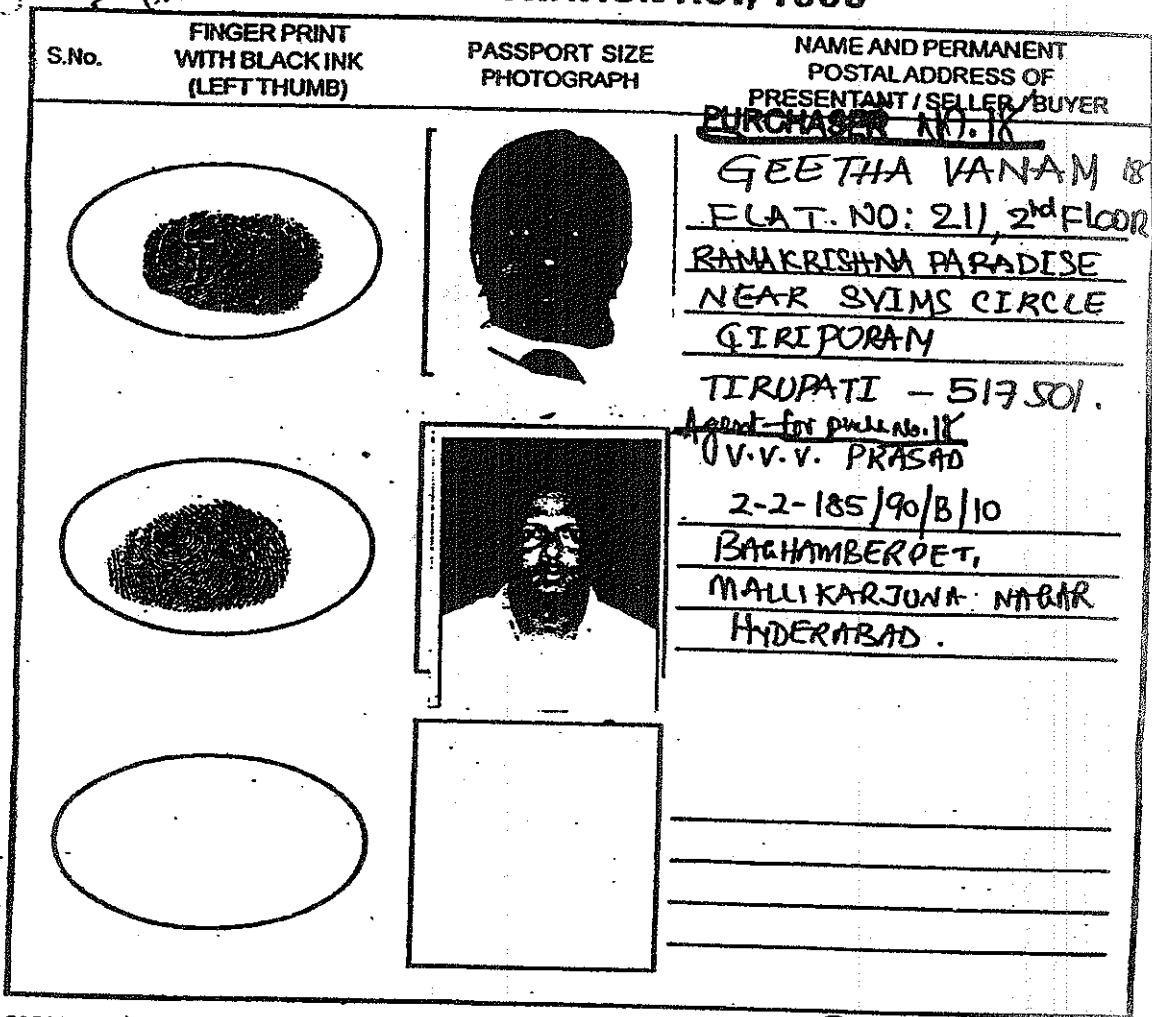 ACT, 1908
S.No.
FINGER PRINT
WITH BLACK INK
(LEFT THUMB)
PASSPORT SIZE
PHOTOGRAPH
NAME AND PERMANENT
POSTAL ADDRESS OF
PRESENTANT / SELLER / BUYER
PURCHASER NO. 18
GEETHA VANAM
FLAT. NO: 211, 2nd FLOOR
RAMAKRISHNA PARADISE
NEAR SVIMS CIRCLE
GIRIPURAM
TIRUPATI - 517501.
Agent for No. 18
V.V.V. PRASAD
2-2-185/90/B/10
BAGHAMBERPET,
MALLIKARJUNA NAGAR
HYDERABAD.